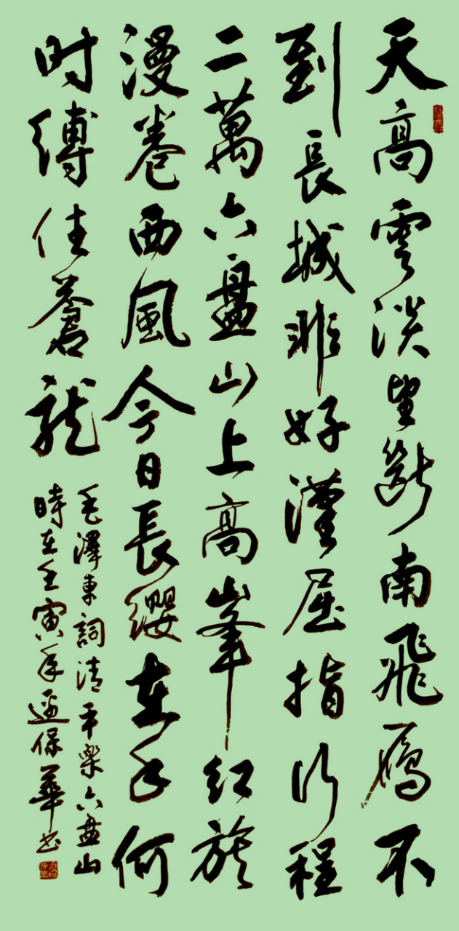 天高雲淡望斷南飛雁不
到長城非好漢屈指行程
二萬六盘山上高峯紅旗
漫卷西風今日長纓在手何
时縛住蒼龍
毛澤東詞清平樂六盘山
時在壬寅年保華书